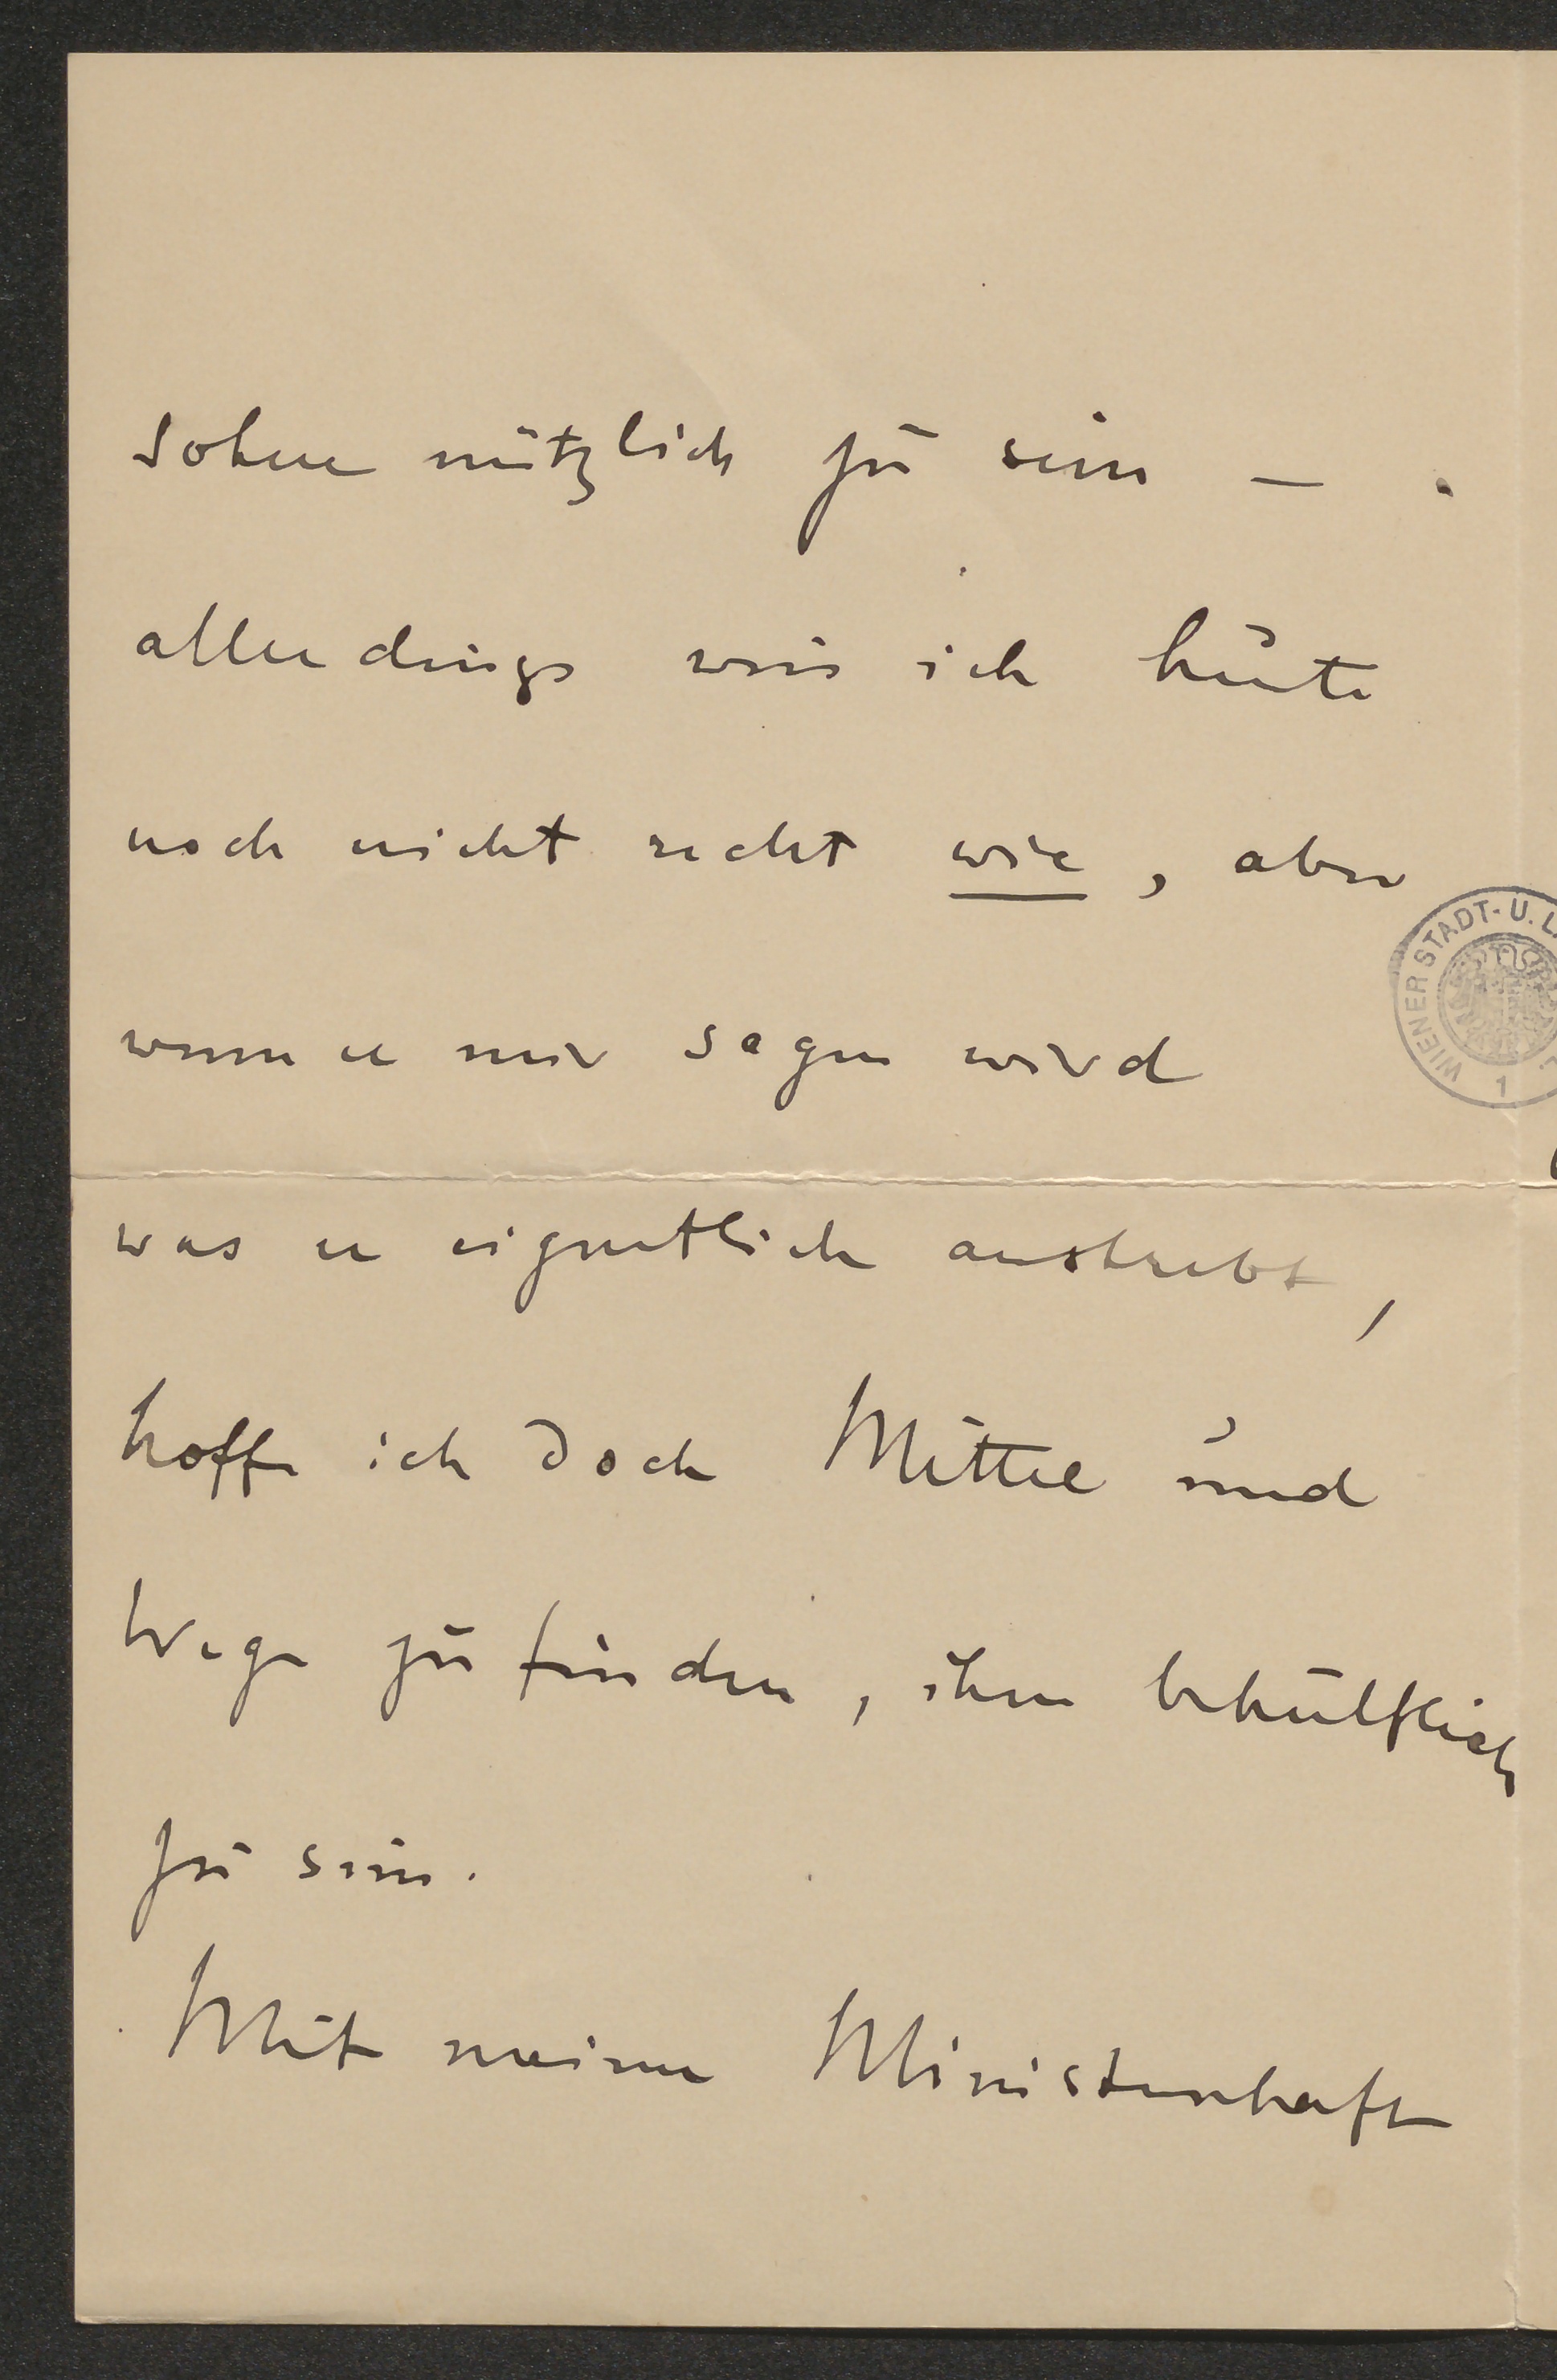 Sohne nützlich zu sein –
allerdings weis ich heute
noch nicht recht wie, aber
wenn er mir sagen wird
was er eigentlich anstrebt,
hoffe ich doch Mittel und
Wege zu finden, ihm behülflich
zu sein.
Mit meiner Ministerschaft
WIENER STADT- U. L
1